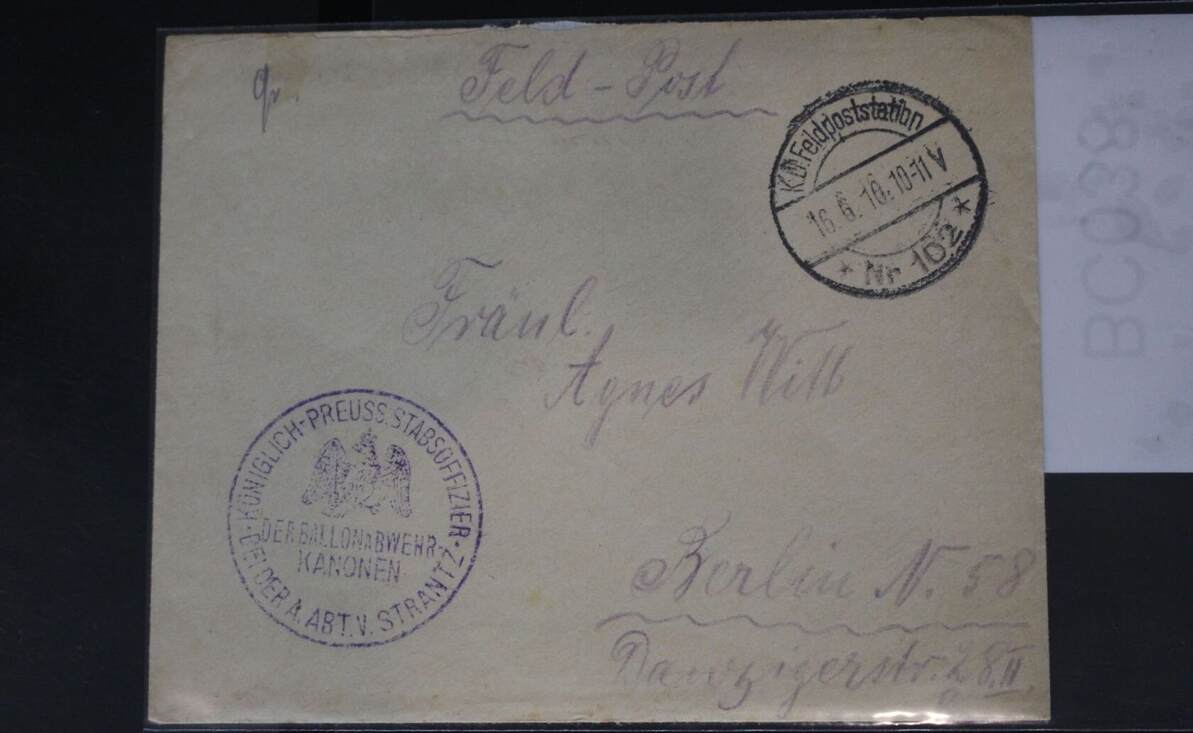 Feld-Post
K.D. Feldpoststation
16.6.16.10-11 V
* Nr 102 *
Fräul.
Agnes Witt
KÖNIGLICH-PREUSS. STABSOFFIZIER
DER BALLONABWEHR-
KANONEN
BEI DER A. ABT. V. STRANTZ
Berlin N. 58
Danzigerstr. 28.II
BC038